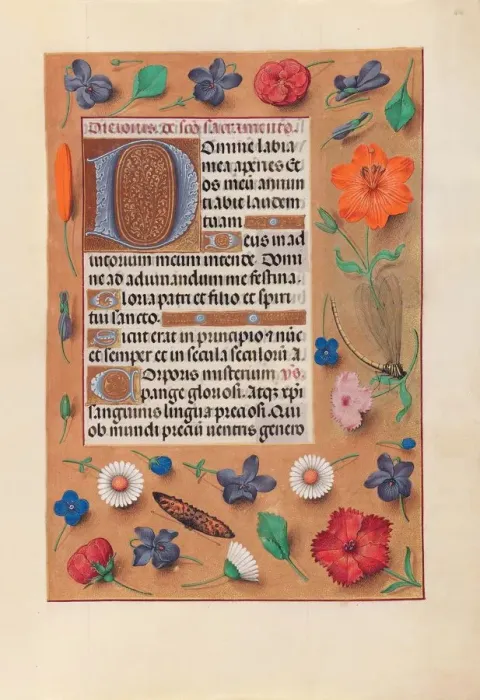 Die iouis. de scō sacramento.
Domine labia
mea aperies Et
os meū annun
tiabit laudem
tuam
Deus in ad
iutorium meum intende. Domi
ne ad adiuuandum me festina.
Gloria patri et filio et spiri
tui sancto.
Sicut erat in principio ⁊ nūc
et semper et in secula seculorū A.
Corporis misterium
pange gloriosi. Atqꝫ xp̄i
sanguinis lingua preciosi. Qui
ob mundi preciū uentris genero